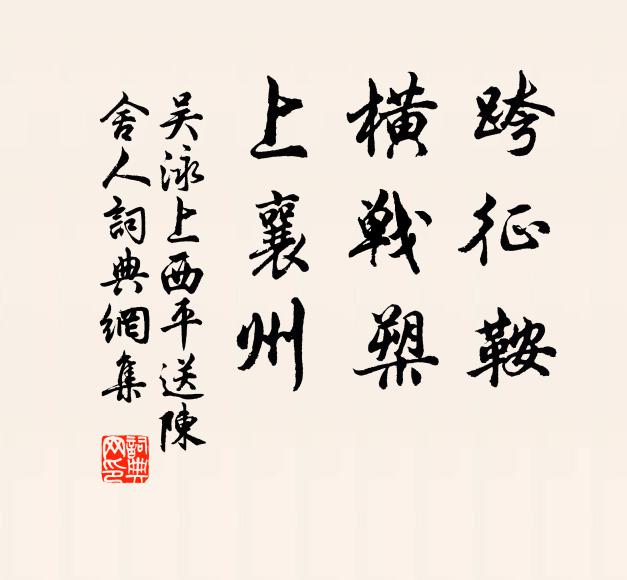 跨征鞍
橫戰槊
上襄州
吳泳上西平送陳
舍人詞典網集
詞典网印